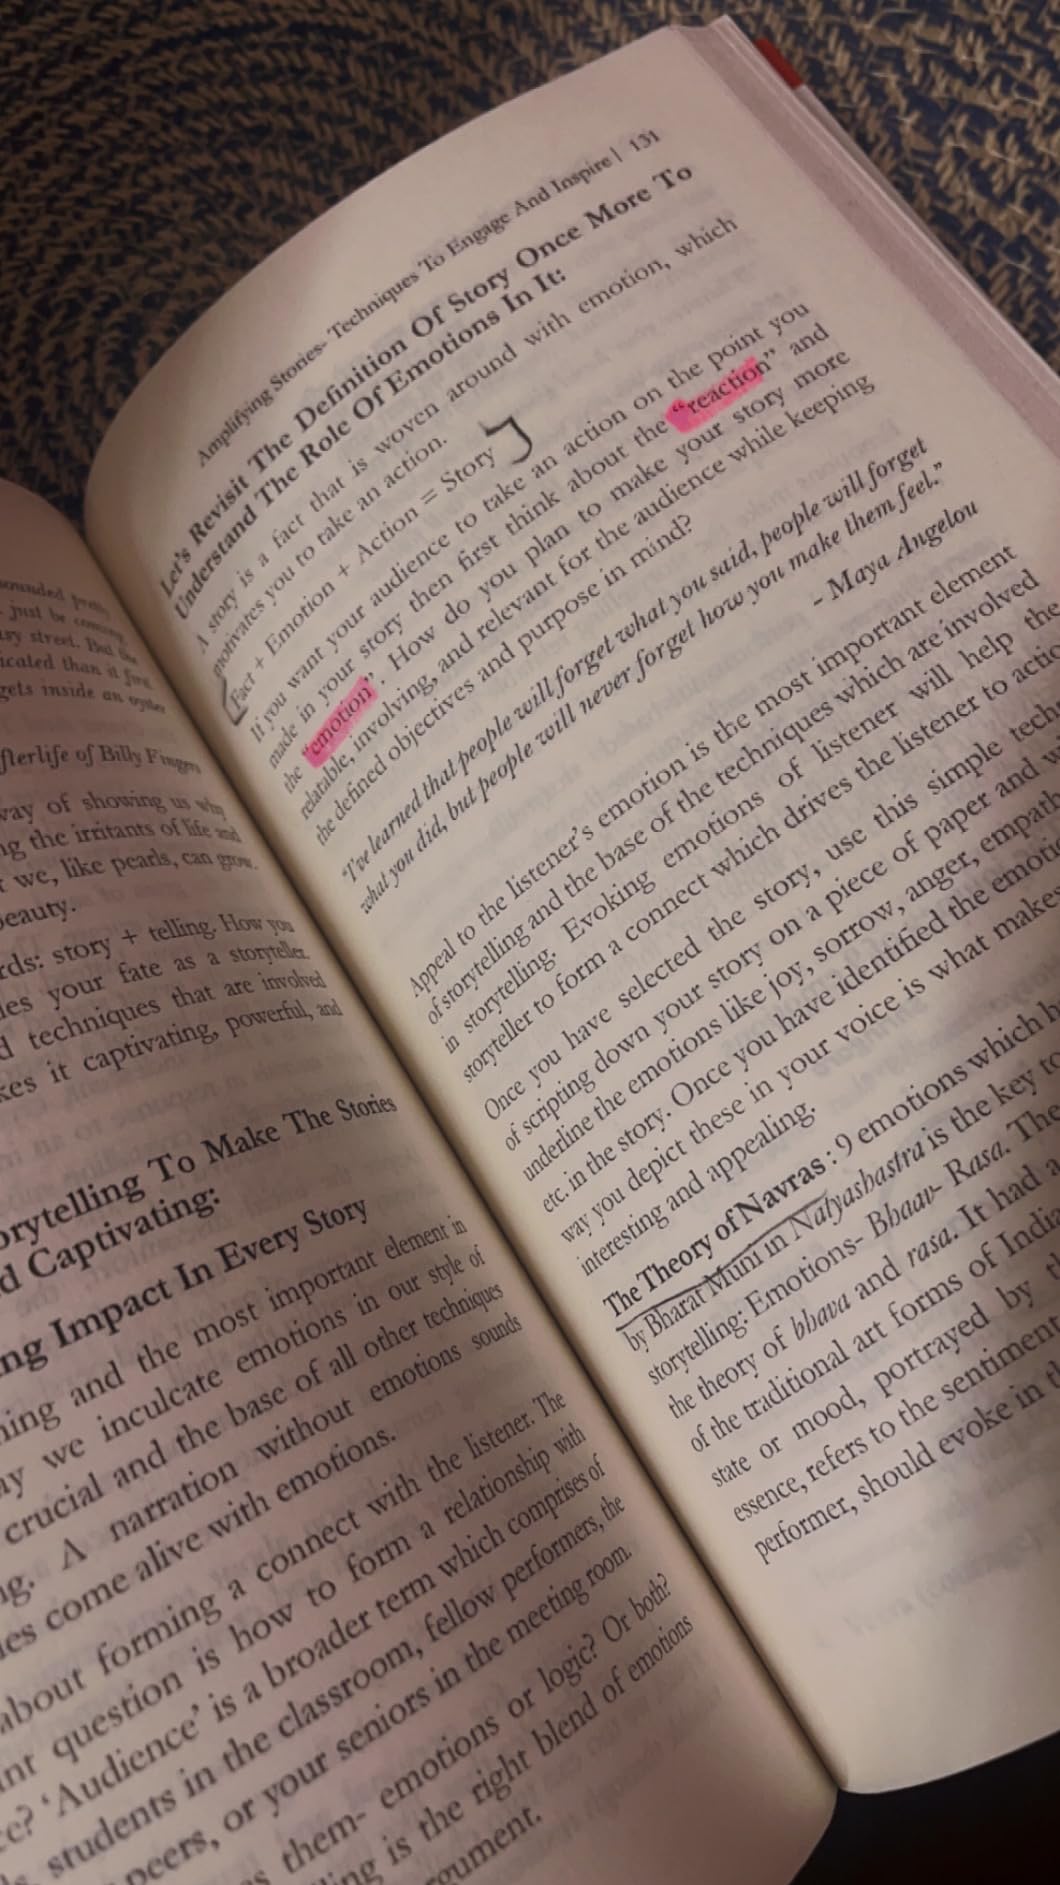 ounded pretty
just be coming
sy street. But the
icated than it first
gets inside an oyster
fterlife of Billy Fingers
way of showing us why
ng the irritants of life and
t we, like pearls, can grow
beauty.
rds: story + telling. How you
les your fate as a storyteller.
d techniques that are involved
kes it captivating, powerful, and
orytelling To Make The Stories
d Captivating:
ng Impact In Every Story
ning and the most important element in
ay we inculcate emotions in our style of
crucial and the base of all other techniques
ng. A narration without emotions sounds
les come alive with emotions.
about forming a connect with the listener. The
ant question is how to form a relationship with
ce? ‘Audience’ is a broader term which comprises of
students in the classroom, fellow performers, the
peers, or your seniors in the meeting room.
them- emotions or logic? Or both?
ling is the right blend of emotions
rgument.
Amplifying Stories- Techniques To Engage And Inspire | 131
Let’s Revisit The Definition Of Story Once More To
Understand The Role Of Emotions In It:
A story is a fact that is woven around with emotion, which
motivates you to take an action.
Fact + Emotion + Action = Story
If you want your audience to take an action on the point you
made in your story then first think about the “reaction” and
the “emotion”. How do you plan to make your story more
relatable, involving, and relevant for the audience while keeping
the defined objectives and purpose in mind?
“I’ve learned that people will forget what you said, people will forget
what you did, but people will never forget how you make them feel.”
- Maya Angelou
Appeal to the listener’s emotion is the most important element
of storytelling and the base of the techniques which are involved
in storytelling. Evoking emotions of listener will help the
storyteller to form a connect which drives the listener to actio
Once you have selected the story, use this simple techn
of scripting down your story on a piece of paper and
underline the emotions like joy, sorrow, anger, empath
etc. in the story. Once you have identified the emotio
way you depict these in your voice is what makes
interesting and appealing.
The Theory of Navras : 9 emotions which h
by Bharat Muni in Natyashastra is the key to
storytelling: Emotions- Bhaav- Rasa. The
the theory of bhava and rasa. It had a
of the traditional art forms of India
state or mood, portrayed by th
essence, refers to the sentiment
performer, should evoke in th